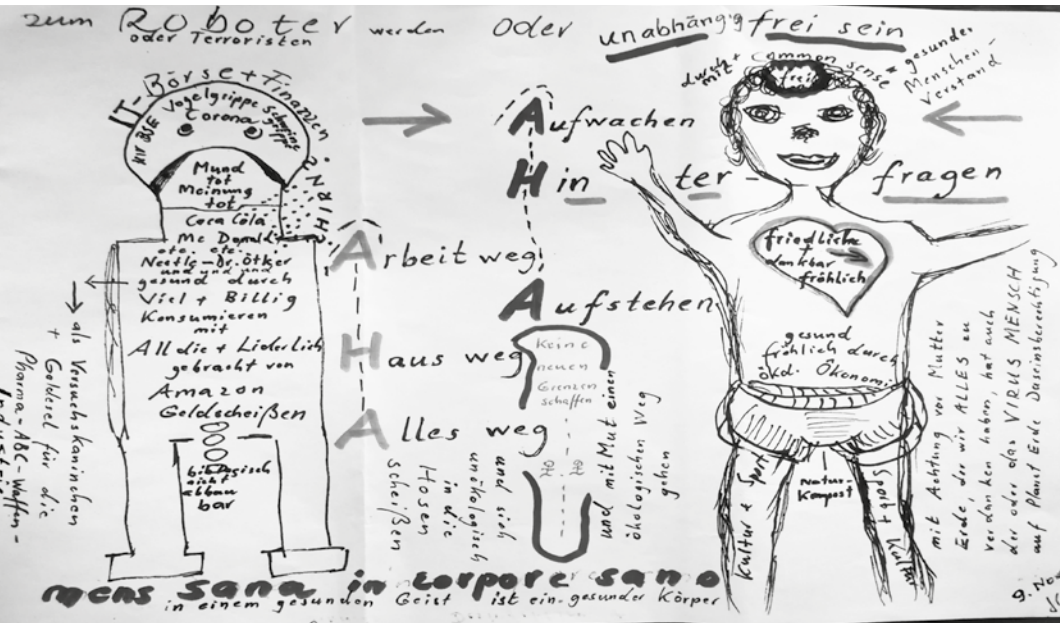 zum Roboter werden oder unabhängig frei sein
oder Terroristen
IT-Börse + Finanzen
Vogelgrippe
Corona
HIV BSE
HIRN?
Mund
tot
Meinung
tot
Coca Cola
Mc Donald
etc. etc.
Nestle-Dr. Ötker
und und und
gesund durch
Viel + Billig
Konsumieren
mit
All die + Liderlich
gebracht von
Amazon
Geldscheißen
biologisch
nicht
abbau
bar
als Versuchskaninchen
+ Goldesel für die
Pharma-ABC-Waffen-
Industrie
Arbeit weg
Haus weg
Alles weg
und sich
unökologisch
in die
Hosen
scheißen
Aufwachen
Hin ter- fragen
Aufstehen
Keine
neuen
Grenzen
schaffen
und mit Mut einen
ökologischen Weg
gehen
durch +
mit
common sense
frei
gesunder
Menschen-
Verstand
friedliche
+
dankbar
fröhlich
gesund
fröhlich durch
ökol. Ökonomi
Natur-
Kompost
Kultur + Sport
mit Achtung vor Mutter
Erde, der wir ALLES zu
verdanken haben, hat auch
der oder das VIRUS MENSCH
auf Planet Erde Daseinsberechtigung
mens sana in corpore sano
in einem gesunden Geist ist ein gesunder Körper
9. No